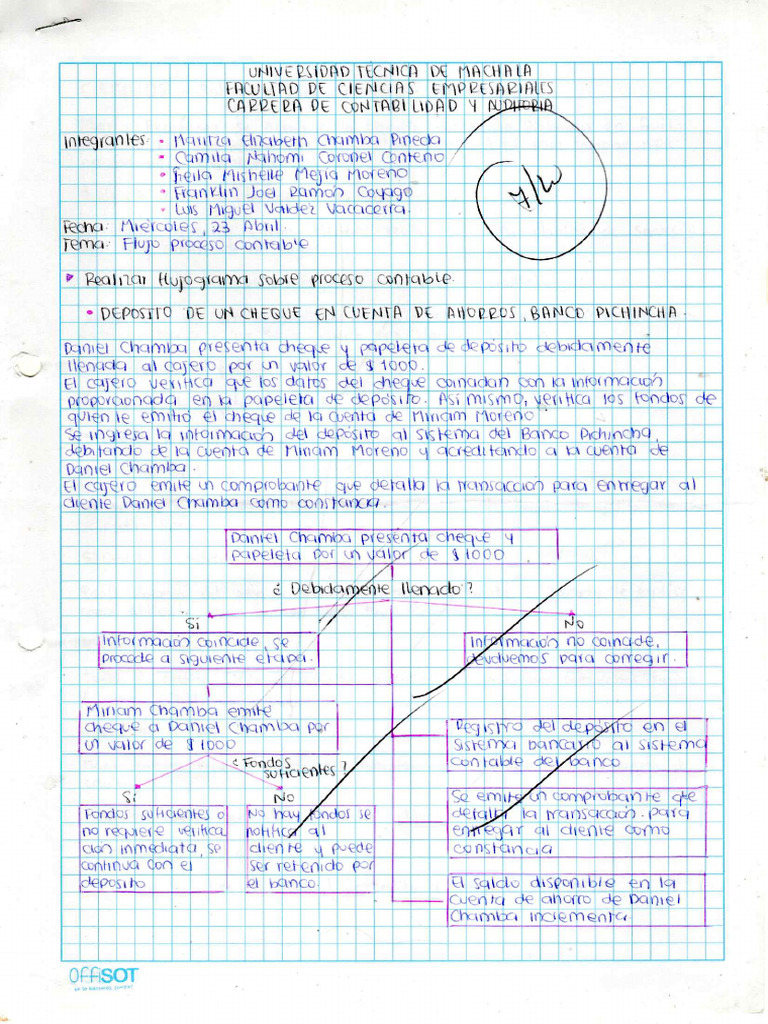 UNIVERSIDAD TÉCNICA DE MACHALA
FACULTAD DE CIENCIAS EMPRESARIALES
CARRERA DE CONTABILIDAD Y AUDITORIA
Integrantes: • Maritza Elizabeth Chamba Pineda
• Camila Nahomi Coronel Centeno
• Mishelle Mejia Moreno
• Franklin Joel Ramón Coyago
• Luis Miguel Valdez Vacacerra.
7/10
Fecha: Miércoles, 23 Abril.
Tema: Flujo proceso contable
Realizar flujograma sobre proceso contable.
• DEPOSITO DE UN CHEQUE EN CUENTA DE AHORROS, BANCO PICHINCHA.
Daniel Chamba presenta cheque y papeleta de depósito debidamente
llenada al cajero por un valor de $1000.
El cajero verifica que los datos del cheque coincidan con la información
proporcionada en la papeleta de depósito. Asi mismo, verifica los fondos de
quien le emitió el cheque de la cuenta de Miriam Moreno.
Se ingresa la información del depósito al sistema del Banco Pichincha,
debitando de la cuenta de Miriam Moreno y acreditando a la cuenta de
Daniel Chamba.
El cajero emite un comprobante que detalla la transacción para entregar al
cliente Daniel Chamba como constancia.
Daniel Chamba presenta cheque y
papeleta por un valor de $1000
¿Debidamente llenado?
Si
No
Información coincide, se
procede a siguiente etapa.
Información no coincide,
devolvemos para corregir.
Miriam Chamba emite
cheque a Daniel Chamba por
un valor de $1000
¿Fondos
suficientes?
Si
No
Fondos suficientes o
no requiere verifica
ción inmediata, se
continua con el
deposito
No hay fondos se
notifica al
cliente y puede
ser retenido por
el banco.
Registro del depósito en el
sistema bancario al sistema
contable del banco
Se emite un comprobante que
detalla la transacción para
entregar al cliente como
constancia
El saldo disponible en la
cuenta de ahorro de Daniel
Chamba incrementa.
OFFISOT